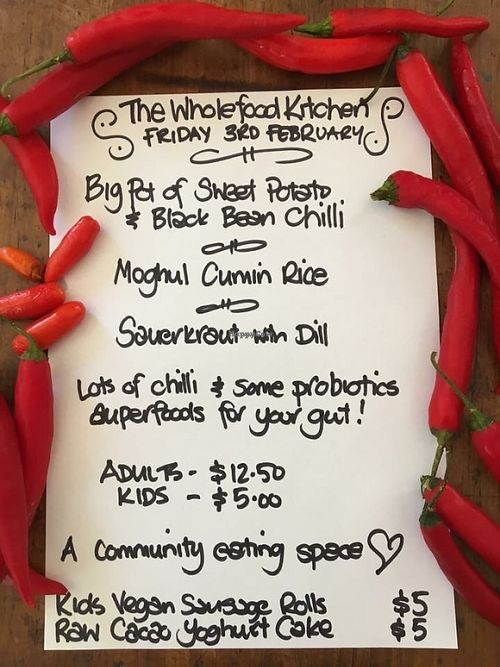 The Wholefood Kitchen
FRIDAY 3RD FEBRUARY
Big Pot of Sweet Potato
& Black Bean Chilli
Moghul Cumin Rice
Sauerkraut with Dill
Lots of chilli & some probiotics
superfoods for your gut!
ADULTS - $12.50
KIDS - $5.00
A community eating space
Kids Vegan Sausage Rolls $5
Raw Cacao Yoghurt Cake $5